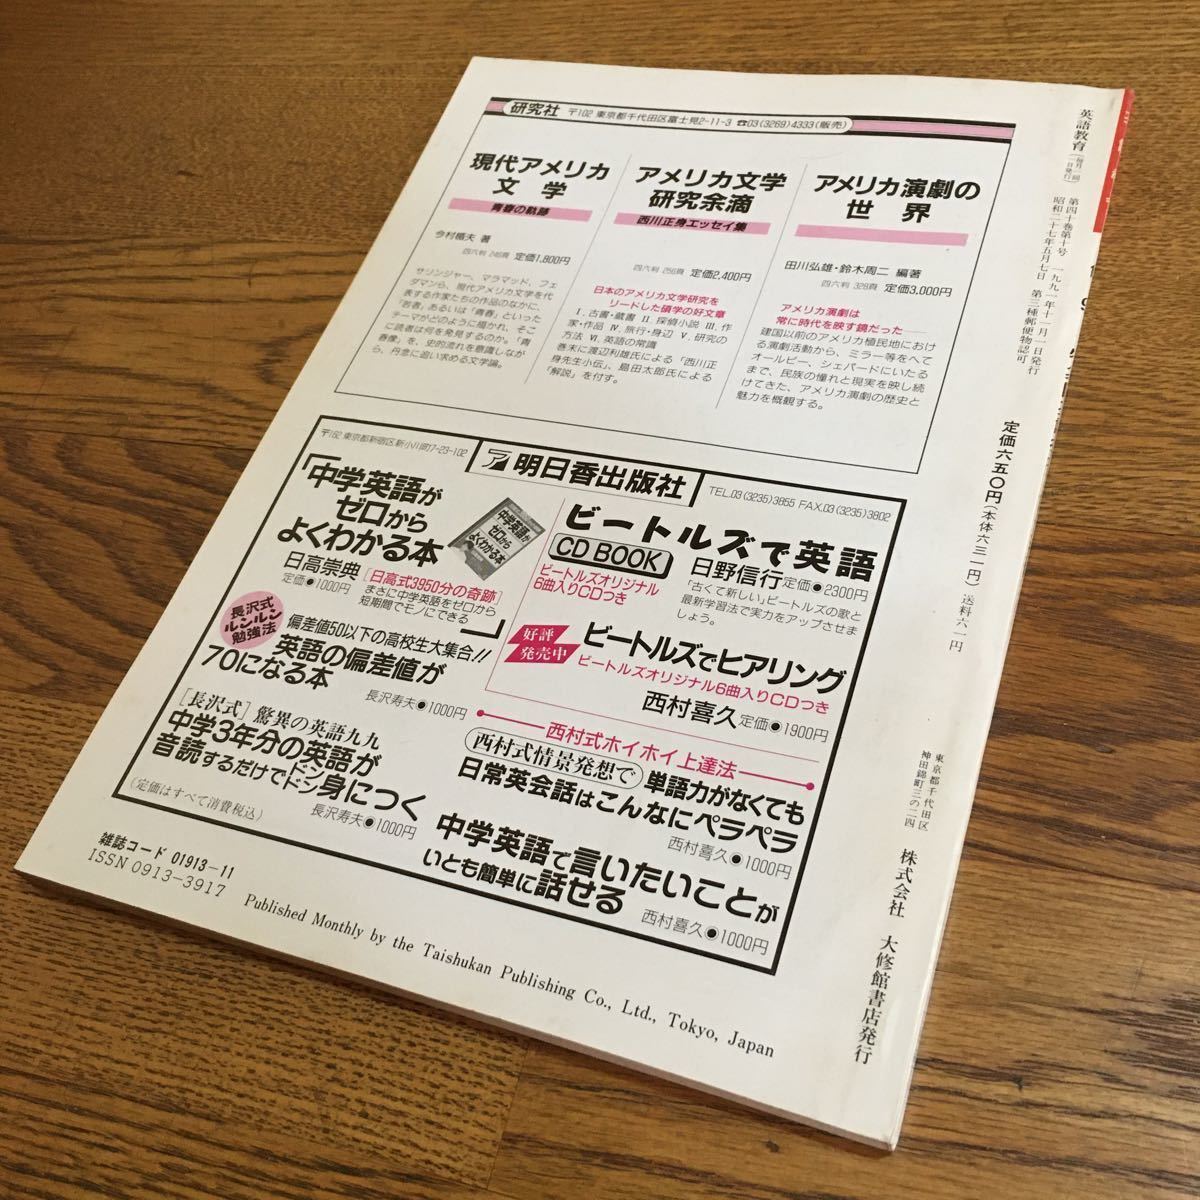 研究社 〒102 東京都千代田区富士見2-11-3 ☎03(3269)4333(販売)
現代アメリカ
文学
青春の軌跡
今村楯夫 著
四六判 246頁 定価1,800円
サリンジャー、マラマッド、フェ
ダマンら、現代アメリカ文学を代
表する作家たちの作品のなかに、
「若者」あるいは「青春」といった
テーマがどのように描かれ、そこ
に読者は何を発見するのか。「青
春像」を、史的流れを意識しなが
ら、丹念に追い求める文学論。
アメリカ文学
研究余滴
西川正身エッセイ集
四六判 256頁 定価2,400円
日本のアメリカ文学研究を
リードした碩学の好文章
Ⅰ.古書・蔵書 Ⅱ.探偵小説 Ⅲ.作
家・作品 Ⅳ.旅行・身辺 Ⅴ.研究の
方法 Ⅵ.英語の常識
巻末に渡辺利雄氏による「西川正
身先生小伝」、島田太郎氏による
「解説」を付す。
アメリカ演劇の
世界
田川弘雄・鈴木周二 編著
四六判 328頁 定価3,000円
アメリカ演劇は
常に時代を映す鏡だった——
建国以前のアメリカ植民地におけ
る演劇活動から、ミラー等をへて
オールビー、シェパードにいたる
まで、民族の憧れと現実を映し続
けてきた、アメリカ演劇の歴史と
魅力を概観する。
〒162 東京都新宿区新小川町7-23-102
明日香出版社
TEL.03(3235)3855 FAX.03(3235)3802
「中学英語が
ゼロから
よくわかる本」
中学英語が
ゼロから
よくわかる本
日高崇典
定価●1000円
[日高式3950分の奇跡]
まさに中学英語をゼロから
短期間でモノにできる
長沢式
ルンルン
勉強法
偏差値50以下の高校生大集合!!
英語の偏差値が
70になる本
長沢寿夫●1000円
[長沢式]驚異の英語九九
中学3年分の英語が
音読するだけでドンドン身につく
(定価はすべて消費税込)
長沢寿夫●1000円
ビートルズで英語
CD BOOK
日野信行 定価●2300円
ビートルズオリジナル
6曲入りCDつき
「古くて新しい」ビートルズの歌と
最新学習法で実力をアップさせま
しょう。
好評
発売中
ビートルズでヒアリング
ビートルズオリジナル6曲入りCDつき
西村喜久 定価●1900円
西村式ホイホイ上達法
西村式情景発想で 単語力がなくても
日常英会話はこんなにペラペラ
西村喜久●1000円
中学英語で言いたいことが
いとも簡単に話せる
西村喜久●1000円
雑誌コード 01913-11
ISSN 0913-3917
Published Monthly by the Taishukan Publishing Co., Ltd., Tokyo, Japan
英語教育(毎月一回一日発行) 第四十巻第十号 一九九一年十一月一日発行
昭和二十七年五月七日 第三種郵便物認可
定価六五〇円(本体六三一円)送料六一円
東京都千代田区
神田錦町三の二四
株式会社 大修館書店発行